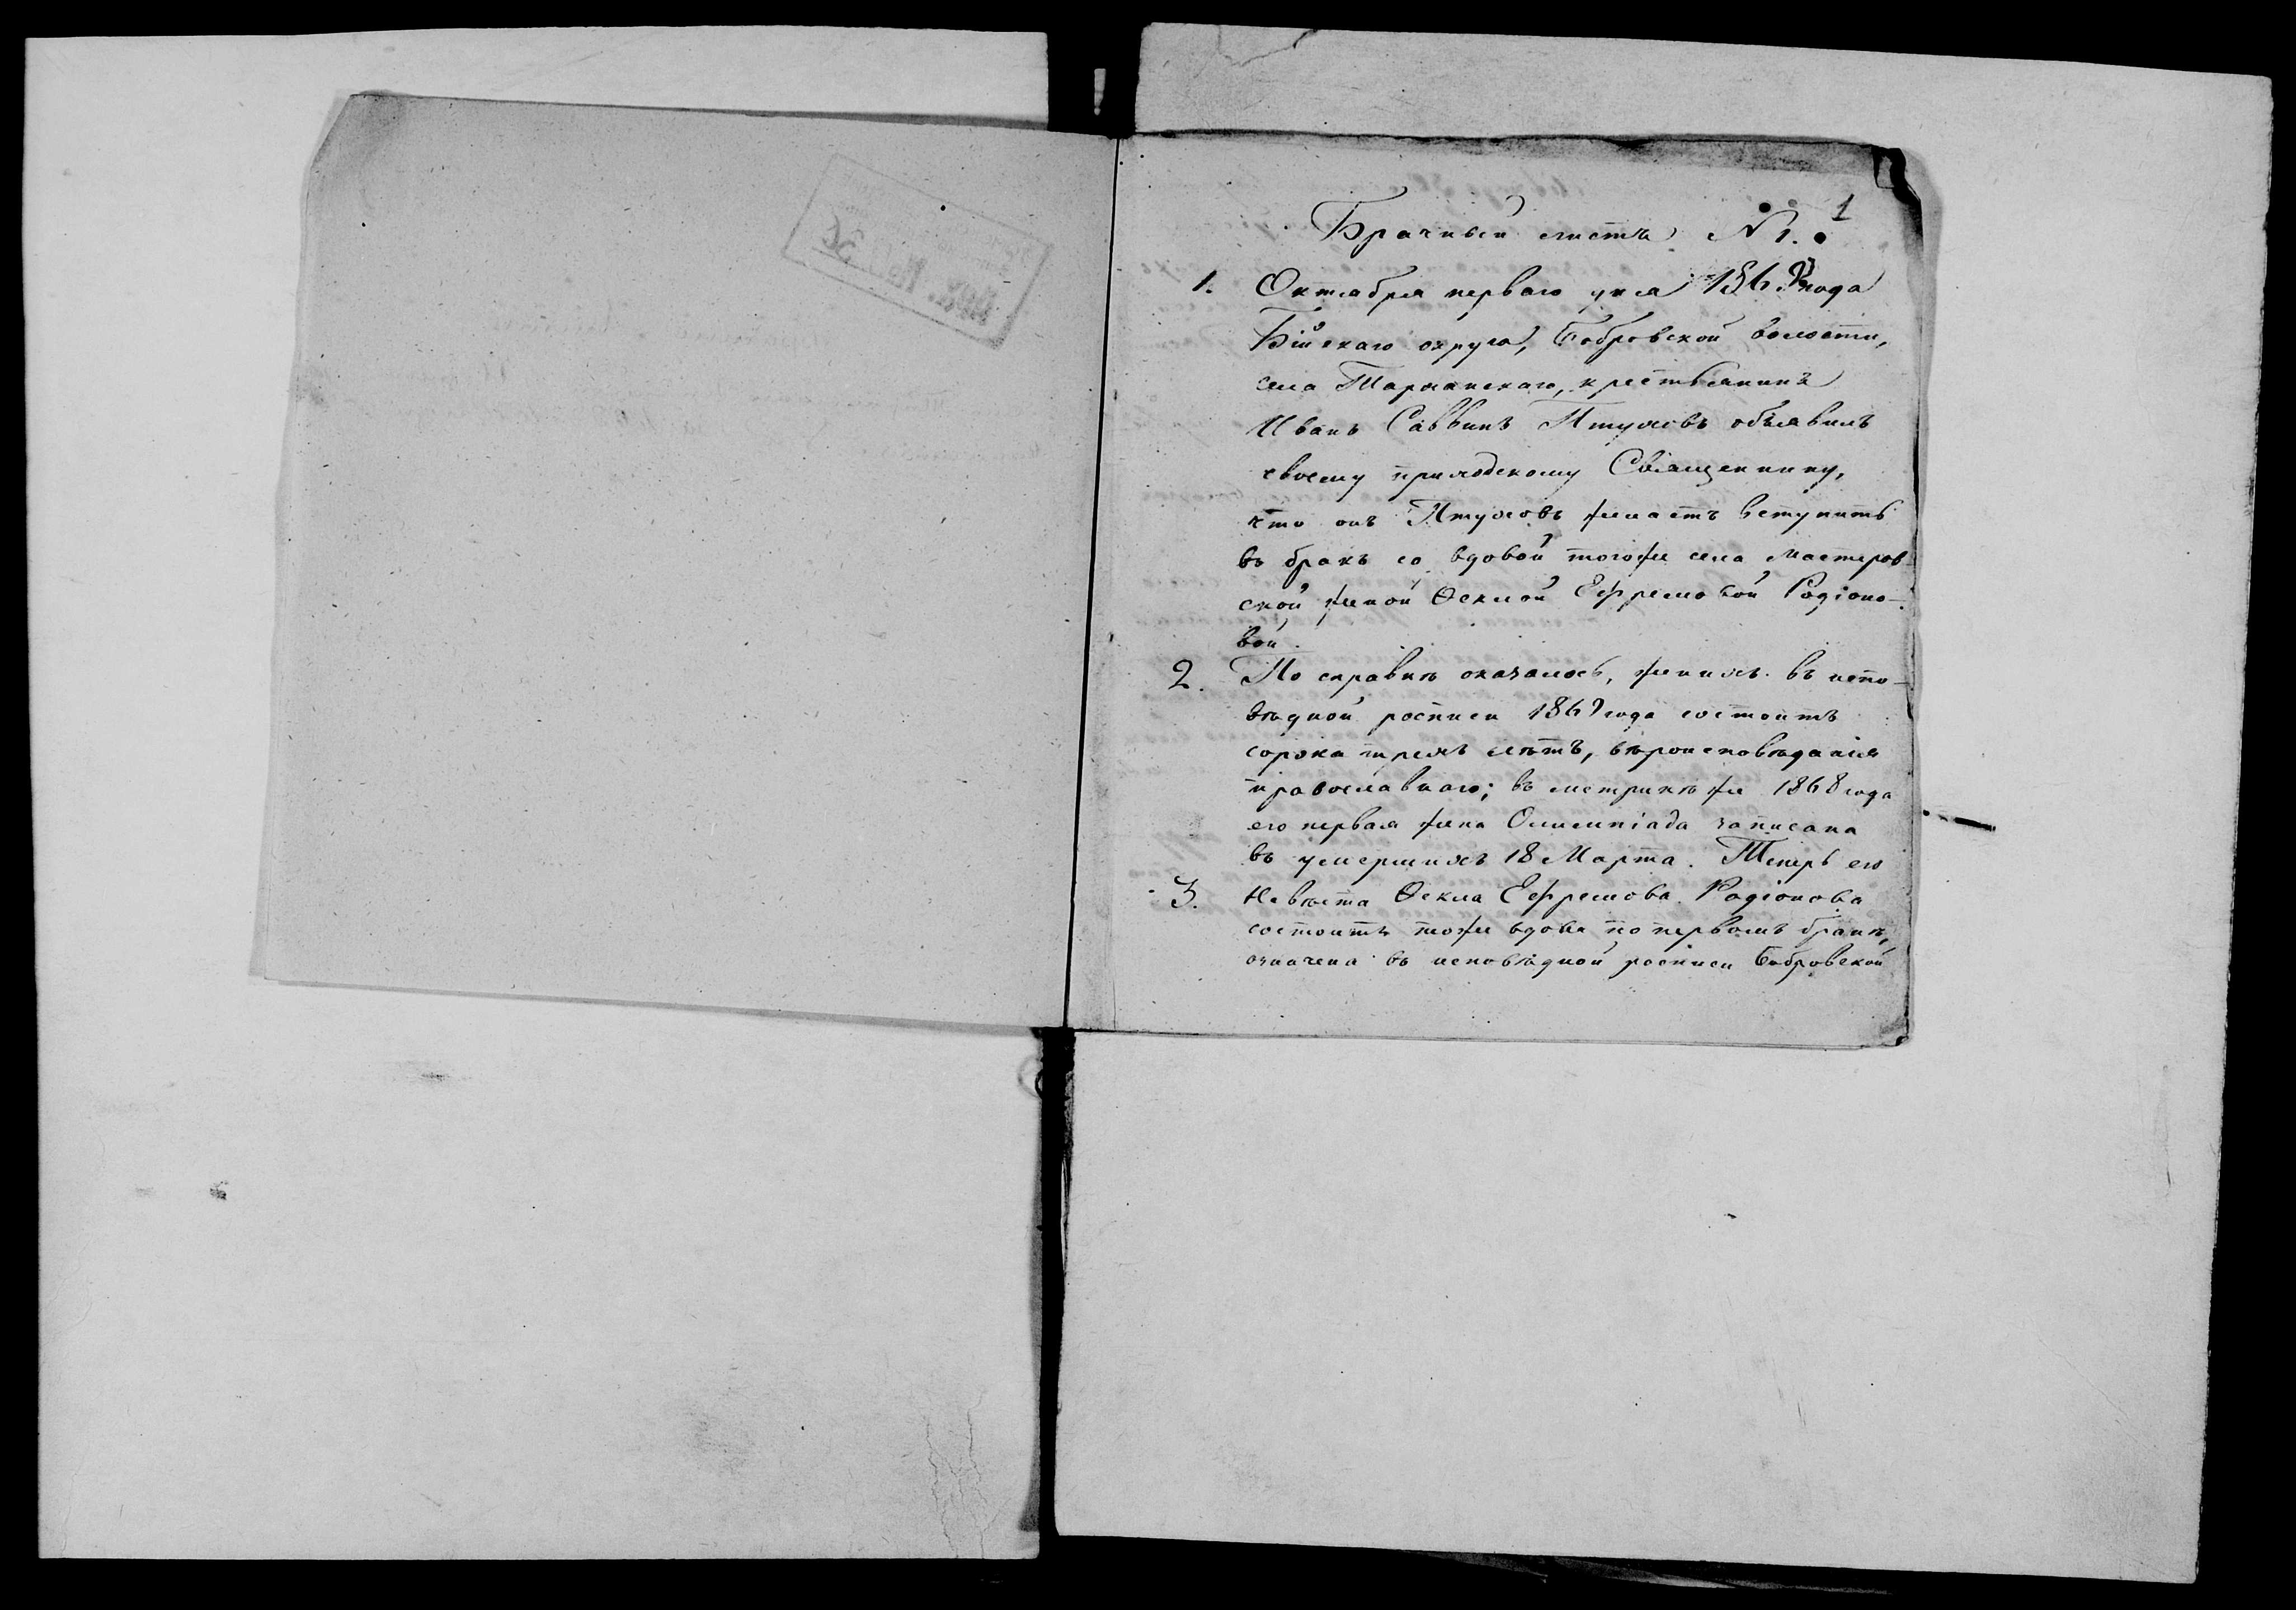 1
Брачный листъ № 1.
1. Октября перваго дня года
Бійскаго округа, Бобровской волости,
села крестьянинъ
Иванъ Саввинъ Птуховъ объявилъ
своему приходскому Священнику,
что онъ Птуховъ желаетъ вступить
въ бракъ со вдовой тогоже села мастеров-
ской женой Ѳеклой Ефремовой Родіоно-
вой.
2. По справкѣ оказалось, женихъ въ испо-
вѣдной росписи 1869 года состоитъ
сорока трехъ лѣтъ, вѣроисповѣданія
православнаго; въ метрикѣ же 1868 года
его первая жена Олимпіада записана
въ умершихъ 18 Марта. Теперь его
3. Невѣста Ѳекла Ефремова Родіонова
состоитъ тоже вдова по первомъ бракѣ,
означена въ исповѣдной росписи Бобровской